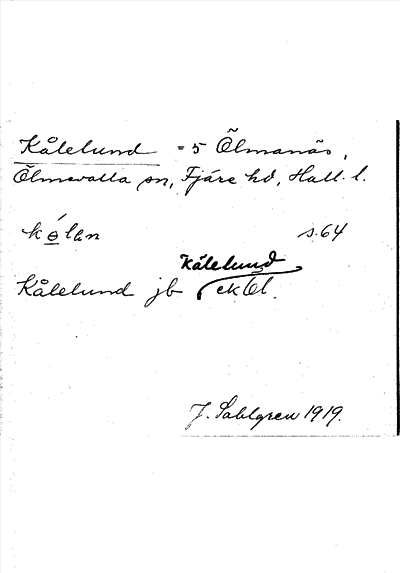 Kålelund = 5 Ölmanäs,
Ölmevalla sn, Fjäre hd, Hall. l.
kólan s. 64
Kålelund
Kålelund jb ekbl.
J. Sahlgren 1919.